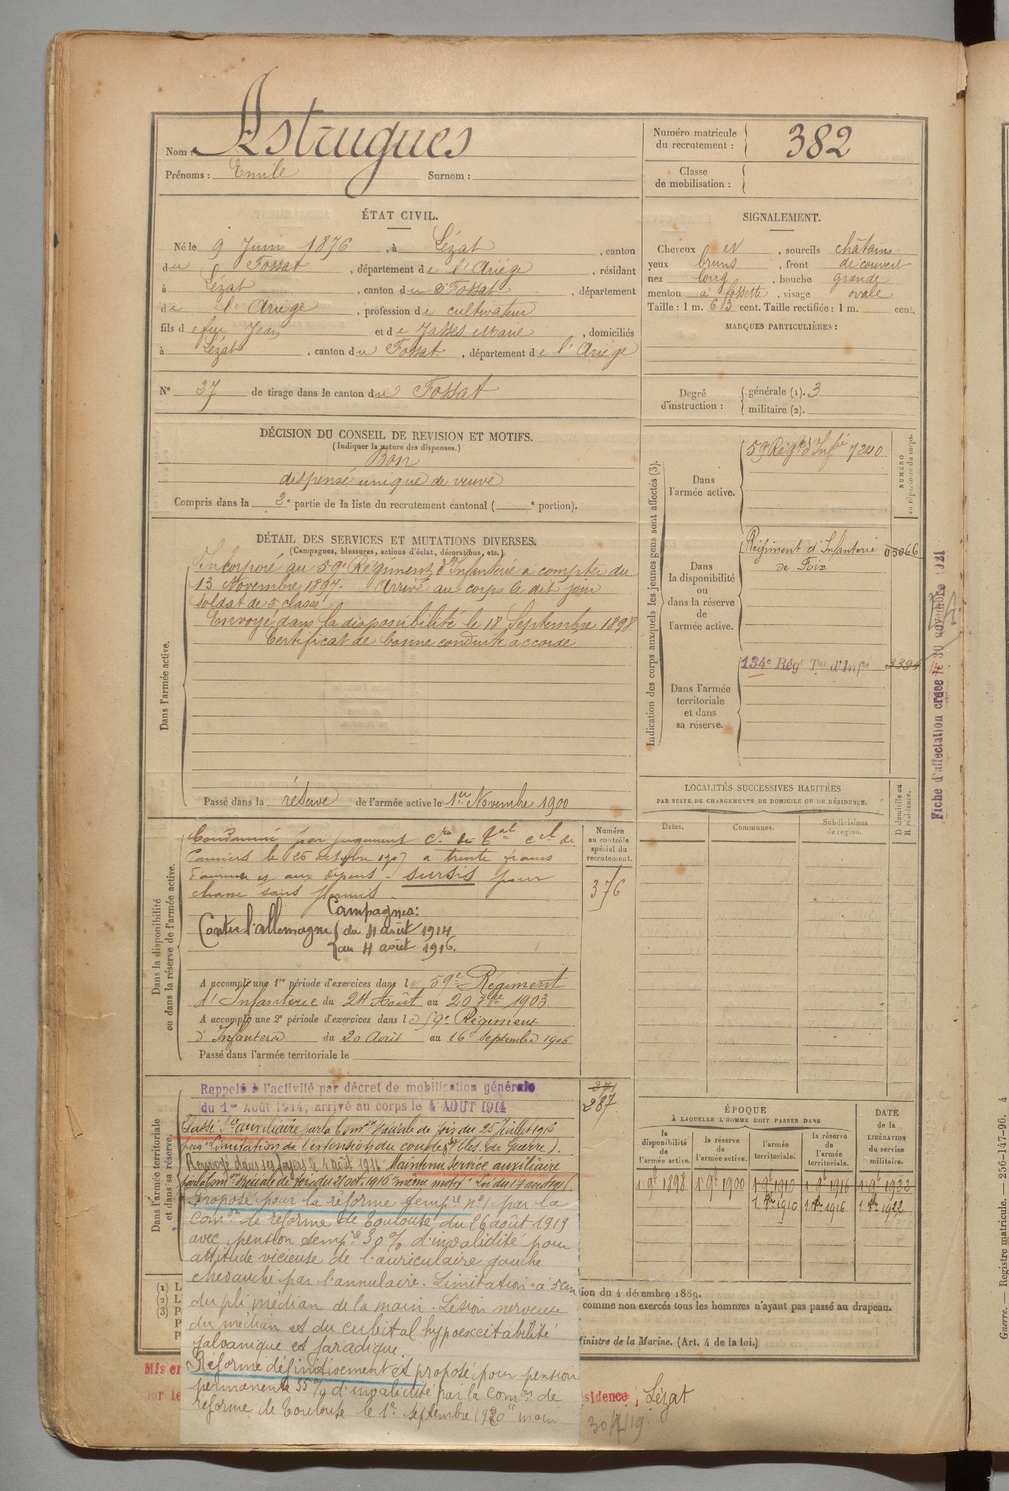 Nom : Astrugues
Prénoms : Emile Surnom :
Numéro matricule du recrutement : 382
Classe de mobilisation :
ÉTAT CIVIL.
Né le 9 Juin 1876, à Lézat, canton
du Fossat, département de l'Ariège, résidant
à Lézat, canton du Fossat, département
de l'Ariège, profession de cultivateur
fils de feu Jean et de Jasses Marie, domiciliés
à Lézat, canton du Fossat, département de l'Ariège
N° 27 de tirage dans le canton du Fossat
SIGNALEMENT.
Cheveux et, sourcils châtains
yeux bruns, front découvert
nez long, bouche grande
menton à fossette, visage ovale
Taille : 1 m. 613 cent. Taille rectifiée : 1 m. cent.
MARQUES PARTICULIÈRES :
Degré d'instruction : générale (1). 3
militaire (2).
DÉCISION DU CONSEIL DE REVISION ET MOTIFS.
(Indiquer la nature des dispenses.)
Bon
dispensé unique de veuve
Compris dans la 2e partie de la liste du recrutement cantonal ( e portion).
DÉTAIL DES SERVICES ET MUTATIONS DIVERSES.
(Campagnes, blessures, actions d'éclat, décorations, etc.)
Dans l'armée active.
Incorporé au 59e Régiment d'Infanterie à compter du
13 Novembre 1897. Arrivé au corps le dit jour
soldat de 2e classe
Envoyé dans la disponibilité le 18 Septembre 1898
Certificat de bonne conduite accordé
Passé dans la réserve de l'armée active le 1er Novembre 1900
Indication des corps auxquels les jeunes gens sont affectés (3).
NUMÉRO au répertoire du corps.
Dans l'armée active.
59e Régt d'Infie 7240
Dans la disponibilité ou dans la réserve de l'armée active.
Régiment d'Infanterie 05066
de Foix
Dans l'armée territoriale et dans sa réserve.
134e Régt Tal d'Infie
Fiche d'affectation créée le 30 novembre 1921
LOCALITÉS SUCCESSIVES HABITÉES
PAR SUITE DE CHANGEMENTS DE DOMICILE OU DE RÉSIDENCE.
Dates. Communes. Subdivisions de région. D domicile ou R résidence.
Dans la disponibilité ou dans la réserve de l'armée active.
Condamné par jugement du cel de
Pamiers le 25 octobre 1907 à trente francs
d'amende et aux dépens. sursis pour
chasse sans permis.
Numéro au contrôle spécial du recrutement.
376
Campagnes :
Contre l'allemagne du 4 août 1914
au 4 août 1916.
A accompli une 1re période d'exercices dans le 59e Régiment
d'Infanterie du 24 Août au 20 7bre 1903
A accompli une 2e période d'exercices dans le 59e Régiment
d'Infanterie du 20 Août au 16 Septembre 1906
Passé dans l'armée territoriale le
Dans l'armée territoriale et dans sa réserve.
Rappelé à l'activité par décret de mobilisation générale
du 1er Août 1914, arrivé au corps le 4 AOUT 1914
287
Renvoyé dans ses foyers le 4 août 1916 Maintenu Service auxiliaire
Proposé pour la réforme tempre n° 1 par la
Comon de réforme de Toulouse du 26 août 1919
avec pension tempre 30 % d'invalidité pour
attitude vicieuse de l'auriculaire gauche
chevauché par l'annulaire. Limitation à 5 cm
du pli médian de la main. Lésion nerveuse
du médian et du cubital hypoexcitabilité
galvanique et faradique.
Réformé définitivement et proposé pour pension
permanente 35 % d'invalidité par la Comon de
réforme de Toulouse le 1er septembre 1920
ÉPOQUE
À LAQUELLE L'HOMME DOIT PASSER DANS
la disponibilité de l'armée active. la réserve de l'armée active. l'armée territoriale. la réserve de l'armée territoriale.
DATE de la LIBÉRATION du service militaire.
1 9bre 1898 1 9bre 1900 1 9bre 1910 1 9bre 1916 1 9bre 1922
1 8bre 1910 1 8bre 1916 1 8bre 1922
(1)
(2)
(3)
ion du 4 décembre 1889.
comme non exercés tous les hommes n'ayant pas passé au drapeau.
inistre de la Marine. (Art. 4 de la loi.)
Mis en
par le
sidence ; Lézat
30/7/19.
Guerre. — Registre matricule. — 256-147-96. 4